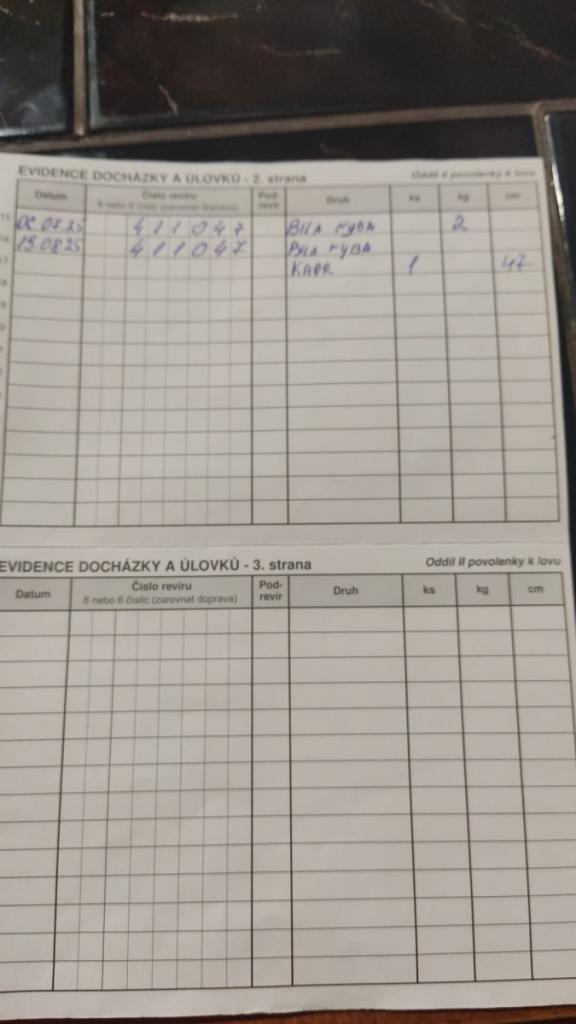 EVIDENCE DOCHÁZKY A ÚLOVKŮ - 2. strana Oddíl II povolenky k lovu
Datum Číslo revíru Pod-revír Druh ks kg cm
8 nebo 6 číslic (zarovnat doprava)
15 02.07.25 411047 BILA RYBA 2
16 19.08.25 411047 BILA RYBA
17 KAPR 1 47
EVIDENCE DOCHÁZKY A ÚLOVKŮ - 3. strana Oddíl II povolenky k lovu
Datum Číslo revíru Pod-revír Druh ks kg cm
8 nebo 6 číslic (zarovnat doprava)